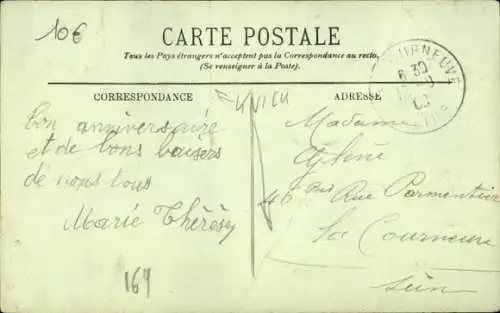 10€
CARTE POSTALE
Tous les Pays étrangers n'acceptent pas la Correspondance au recto.
(Se renseigner à la Poste).
CORRESPONDANCE
ADRESSE
COURNEUVE
6 30
bon anniversaire
et de bons baisers
de nous tous
Marie Thérèse
Madame
46 bis Rue Parmentier
La Courneuve
Sein
164